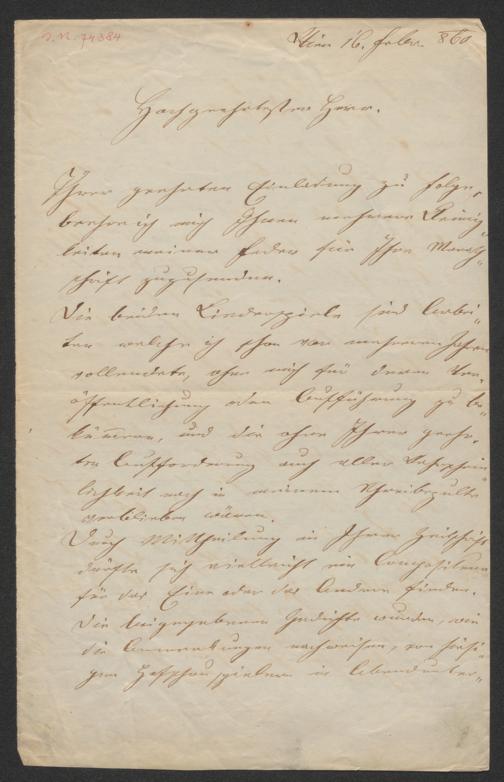 I. N. 74384
Wien 16. Febr. 860
Hochgeehrtester Herr.
Ihrer geehrten Einladung zu folge,
beehre ich mich Ihnen mehrere Kleinig-
keiten meiner Feder für Ihre Monat-
schrift zuzusenden.
Die beiden Liederspiele sind Arbei-
ten welche ich schon vor mehreren Jahren
vollendete, ohne mich für deren Ver-
öffentlichung oder Aufführung zu be-
kümmern, und die ohne Ihrer geehr-
ten Aufforderung auch aller Wahrschein-
lichkeit nach in meinem Schreibepulte
verblieben wären.
Durch Mittheilung in Ihrer Zeitschrift
dürfte sich vielleicht ein Compositeur
für das Eine oder das Andere finden.
Die beigegebenen Gedichte wurden, wie
die Anmerkungen nachweisen, von hiesi-
gen Hofschauspielern in Abendunter-